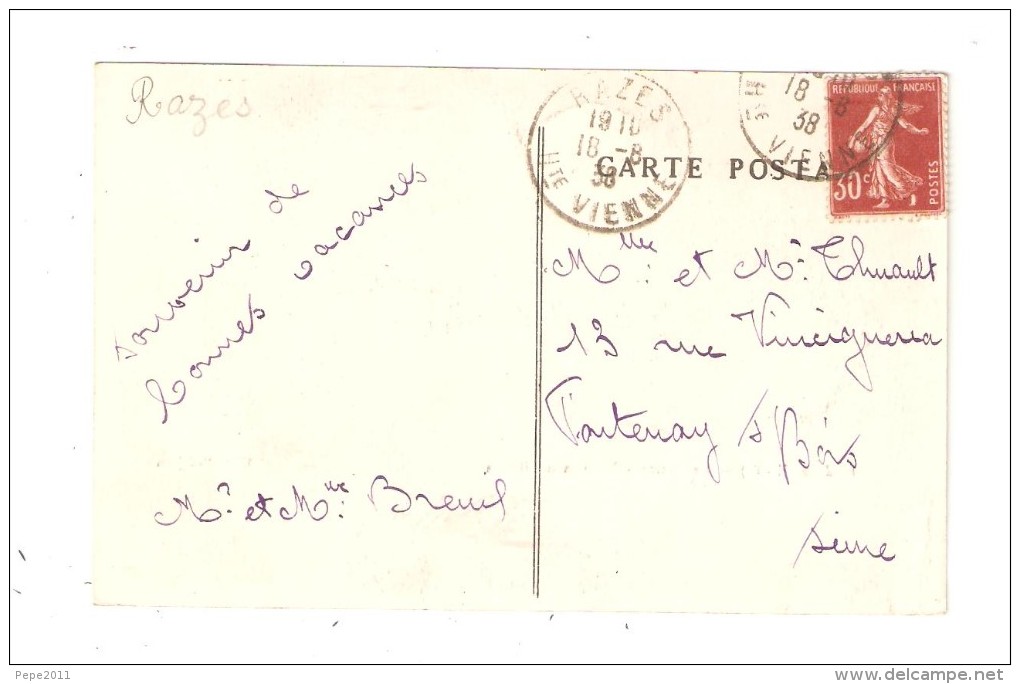 Razes
RAZES
1910
18 -8
38
Hte VIENNE
18 -8
38
Hte VIENNE
REPUBLIQUE FRANÇAISE
30c
POSTES
CARTE POSTA
Souvenir de
bonnes vacances
Mr et Mme Breuil
Mlle et Mr Thuault
13 rue Vinciguerra
Fontenay s/Bois
Seine
Pepe2011
www.delcampe.net